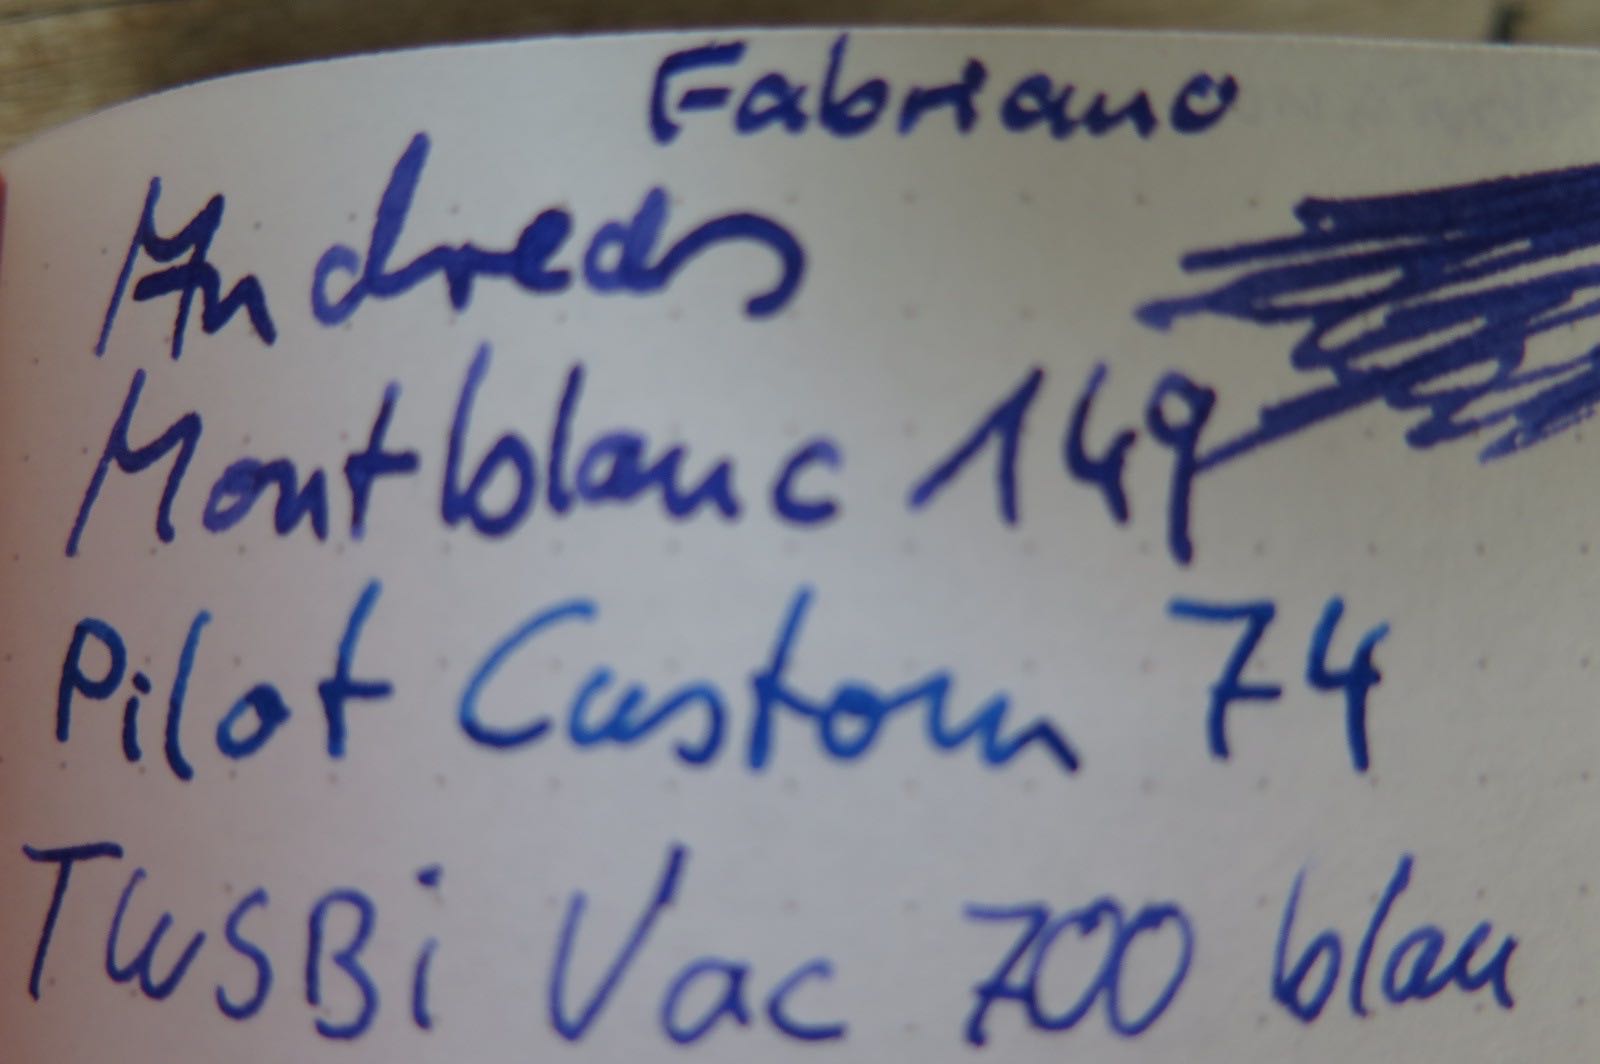 Fabriano
Andreas
Montblanc 149
Pilot Custom 74
TWSBi Vac 700 blau